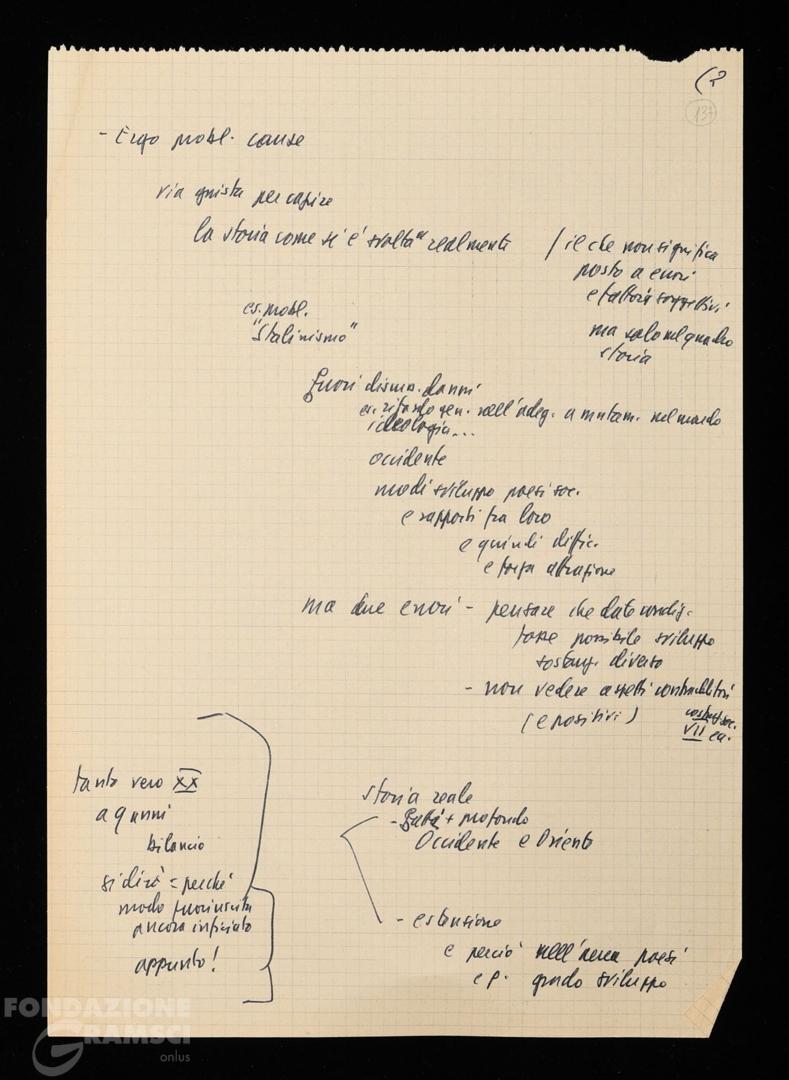 (2
137
- Ergo probl. cause
via giusta per capire
la storia come si è svolta realmente
/ il che non significa
posto a errori
e fattori soggettivi
ma solo nel quadro
storia
es. probl.
"Stalinismo"
errori danni
es. ritardo gen. nell'adeg. a mutam. nel mondo
ideologia...
occidente
modi sviluppo paesi soc.
e rapporti fra loro
e quindi diffic.
e forza attrazione
ma due errori - pensare che date condiz.
fosse possibile sviluppo
sostanz. diverso
- non vedere aspetti contraddittori
(e positivi)
VII
tanto vero XX
a 9 anni
bilancio
si dirà = perché
modo fuoriuscita
ancora inficiato
appunto!
storia reale
- + profondo
Occidente e Oriente
- estensione
e perciò nell'area paesi
e p. grado sviluppo
FONDAZIONE
GRAMSCI
onlus